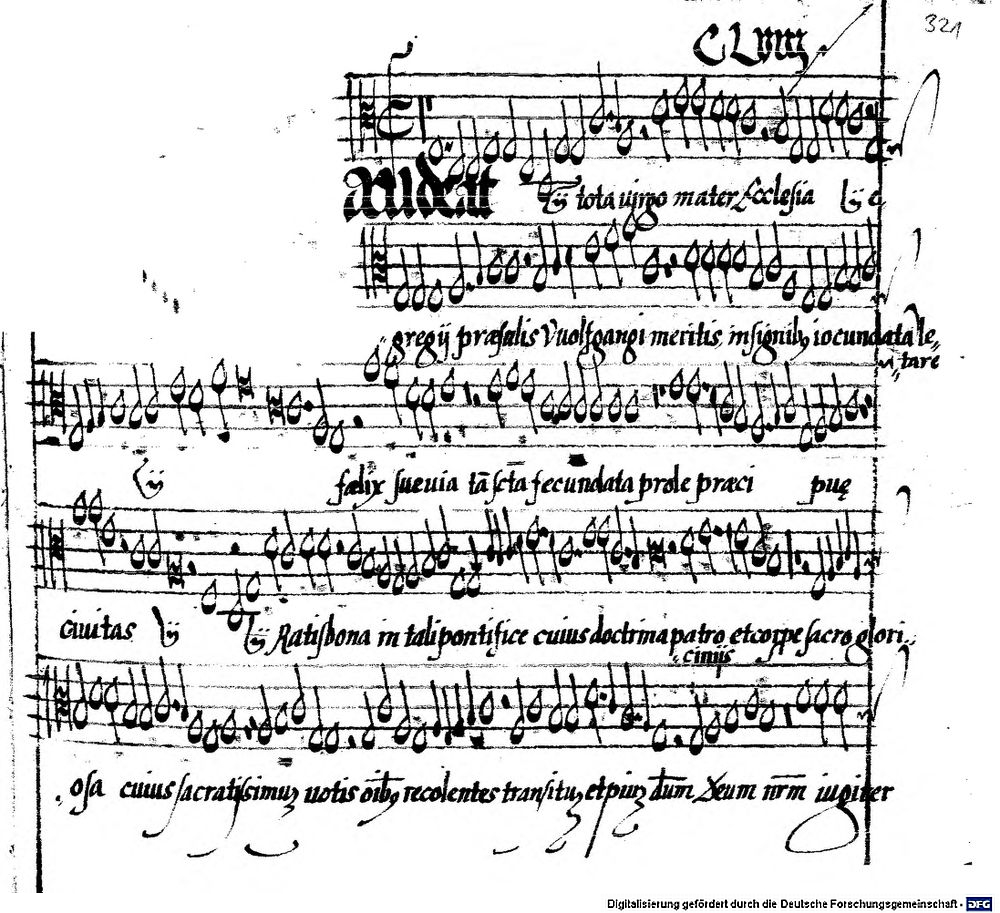 321
CLVIIII
audeat
ij tota virgo mater Ecclesia ij e
gregij præsulis Vuolfgangi meritis insignibꝫ iocundata le
tare
ij fælix suevia tā sctā fecundata prole præci puę
civitas ij ij Ratisbona in tali pontifice cuius doctrina patro et corpe sacro glori
cinijs
osa cuius sacratissimuꝫ votis oībꝫ recolentes transituꝫ et piuꝫ dūm Deum nr̄m iugiter
Digitalisierung gefördert durch die Deutsche Forschungsgemeinschaft - DFG